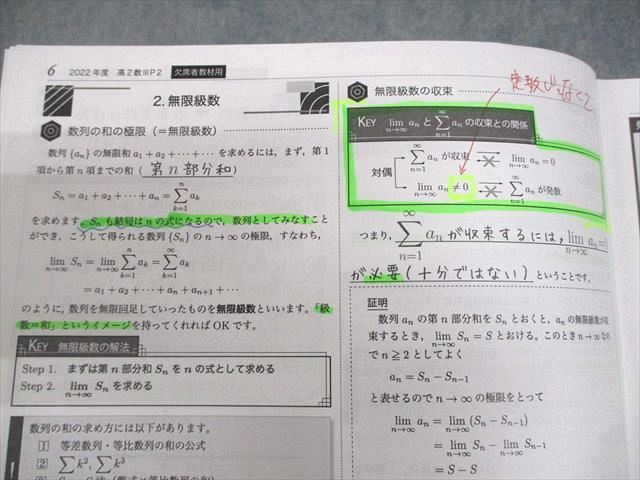 6 2022年度 高2数ⅢP2 欠席者教材用
2.無限級数
数列の和の極限(=無限級数)
数列{aₙ}の無限和a₁+a₂+⋯+⋯を求めるには,まず,第1
項から第n項までの和(第n部分和)
Sₙ=a₁+a₂+⋯+aₙ=∑_{k=1}^{n}aₖ
を求めます.Sₙも結局はnの式になるので,数列としてみなすこと
ができ,こうして得られる数列{Sₙ}のn→∞の極限,すなわち,
lim_{n→∞}Sₙ=lim_{n→∞}∑_{k=1}^{n}aₖ=∑_{k=1}^{∞}aₖ
=a₁+a₂+⋯+aₙ+aₙ₊₁+⋯
のように,数列を無限回足していったものを無限級数といいます.「級
数=和」というイメージを持ってくれればOKです.
KEY 無限級数の解法
Step 1. まずは第n部分和Sₙをnの式として求める
Step 2. lim_{n→∞}Sₙを求める
数列の和の求め方には以下があります.
1 等差数列・等比数列の和の公式
2 ∑k²,∑k³
無限級数の収束
KEY lim_{n→∞}aₙと∑_{n=1}^{∞}aₙの収束との関係
対偶
∑_{n=1}^{∞}aₙが収束 lim_{n→∞}aₙ=0
lim_{n→∞}aₙ≠0 ∑_{n=1}^{∞}aₙが発散
つまり,∑_{n=1}^{∞}aₙが収束するには,lim_{n→∞}aₙ=0
が必要(十分ではない)ということです.
証明
数列aₙの第n部分和をSₙとおくと,aₙの無限級数が収
束するとき,lim_{n→∞}Sₙ=Sとおける.このときn→∞な
のでn≧2としてよく
aₙ=Sₙ−Sₙ₋₁
と表せるのでn→∞の極限をとって
lim_{n→∞}aₙ=lim_{n→∞}(Sₙ−Sₙ₋₁)
=lim_{n→∞}Sₙ−lim_{n→∞}Sₙ₋₁
=S−S